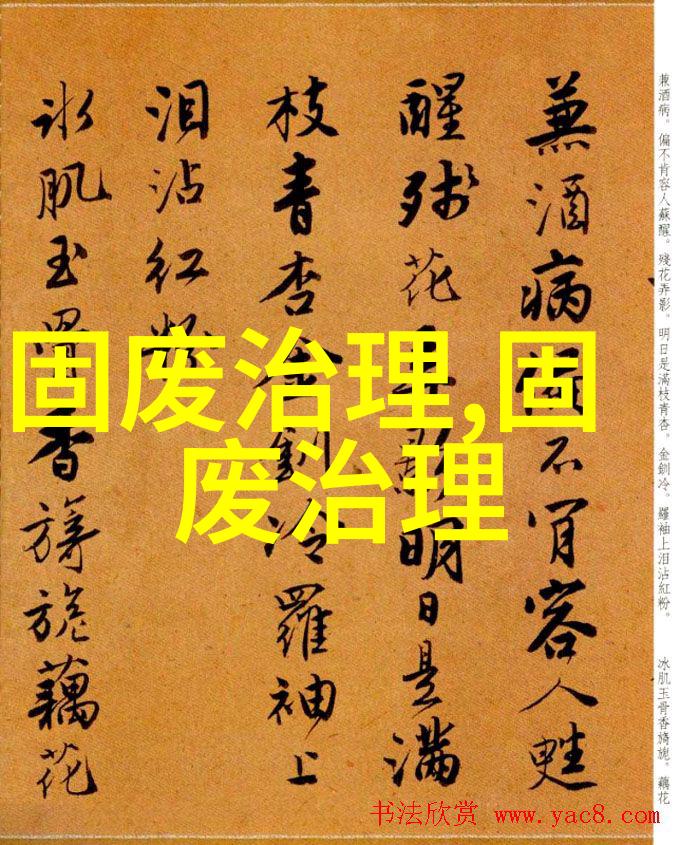 蒹酒病偏不肯容人甦
醒残花弄影明日是滿
枝青杏金釧冷羅袖上
泪沾紅粉
冰肌玉骨香旖旎藕花
兼酒病。偏不肯容人蘇醒。殘花弄影。明日是滿枝青杏。金釧冷。羅袖上泪沾紅粉。
冰肌玉骨香旖旎。藕花
固废治理,固
废治理
书法欣赏 www.yac8.com